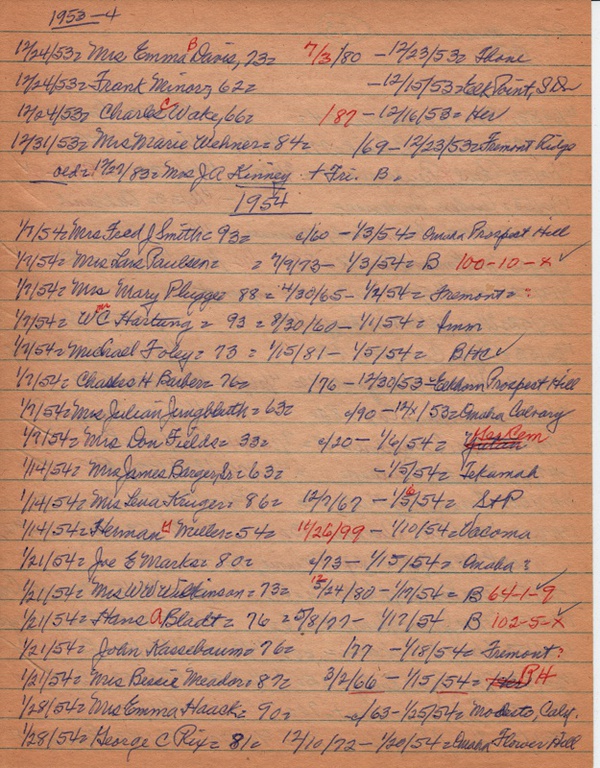 1953-4
12/24/53 = Mrs Emma B Davis, 73 = 7/3/80 - 12/23/53 =
12/24/53 = Frank Minor, 62 = - 12/15/53 = Elk Point, S.D.
12/24/53 = Charles C Wake, 66 = 187 - 12/16/53 = Her
12/31/53 = Mrs Marie Wehner = 84 = 169 - 12/23/53 = Fremont Ridge
12/27/83 = Mrs J. A. Kinney + Fri. B.
1954
1/7/54 = Mrs Fred J Smith = 93 = c/60 - 1/3/54 = Omaha Prospect Hill
1/7/54 = Mrs Lars Paulsen = = 7/9/73 - 1/3/54 = B 100-10-x ✓
1/7/54 = Mrs Mary Plugge 88 = 4/30/65 - 1/2/54 = Fremont = ?
1/7/54 = W C Hartung = 93 = 8/30/60 - 1/1/54 = Imm
1/7/54 = Michael Foley = 73 = 1/15/81 - 1/5/54 = BHC ✓
1/7/54 = Charles H Barber = 76 = 176 - 12/30/53 = Elkhorn Prospect Hill
1/7/54 = Mrs Julian Jungbluth = 63 = c/90 - 12/x/53 = Omaha Calvary
1/7/54 = Mrs Don Fields = 33 = c/20 - 1/6/54 = Cem
1/14/54 = Mrs James Barger, Sr = 63 = - 1/5/54 = Tekamah
1/14/54 = Mrs Lena Kruger = 86 = 12/7/67 - 1/6/54 = StP
1/14/54 = Herman H Miller = 54 = 11/26/99 - 1/10/54 = Tacoma
1/21/54 = Joe E Marks = 80 = c/73 - 1/15/54 = Omaha ?
1/21/54 = Mrs W W Wilkinson = 73 = 12/24/80 - 1/17/54 = B 64-1-9 ✓
1/21/54 = Hans A Bladt = 76 = 5/8/77 - 1/17/54 B 102-5-x ✓
1/21/54 = John Kassebaum = 76 = 177 - 1/18/54 = Fremont ?
1/21/54 = Mrs Bessie Meador = 87 = 3/2/66 - 1/15/54 = BH
1/28/54 = Mrs Emma Haack = 90 = c/63 - 1/25/54 = Modesto, Caly.
1/28/54 = George C Rix = 81 = 12/10/72 - 1/20/54 = Omaha Flower Hill